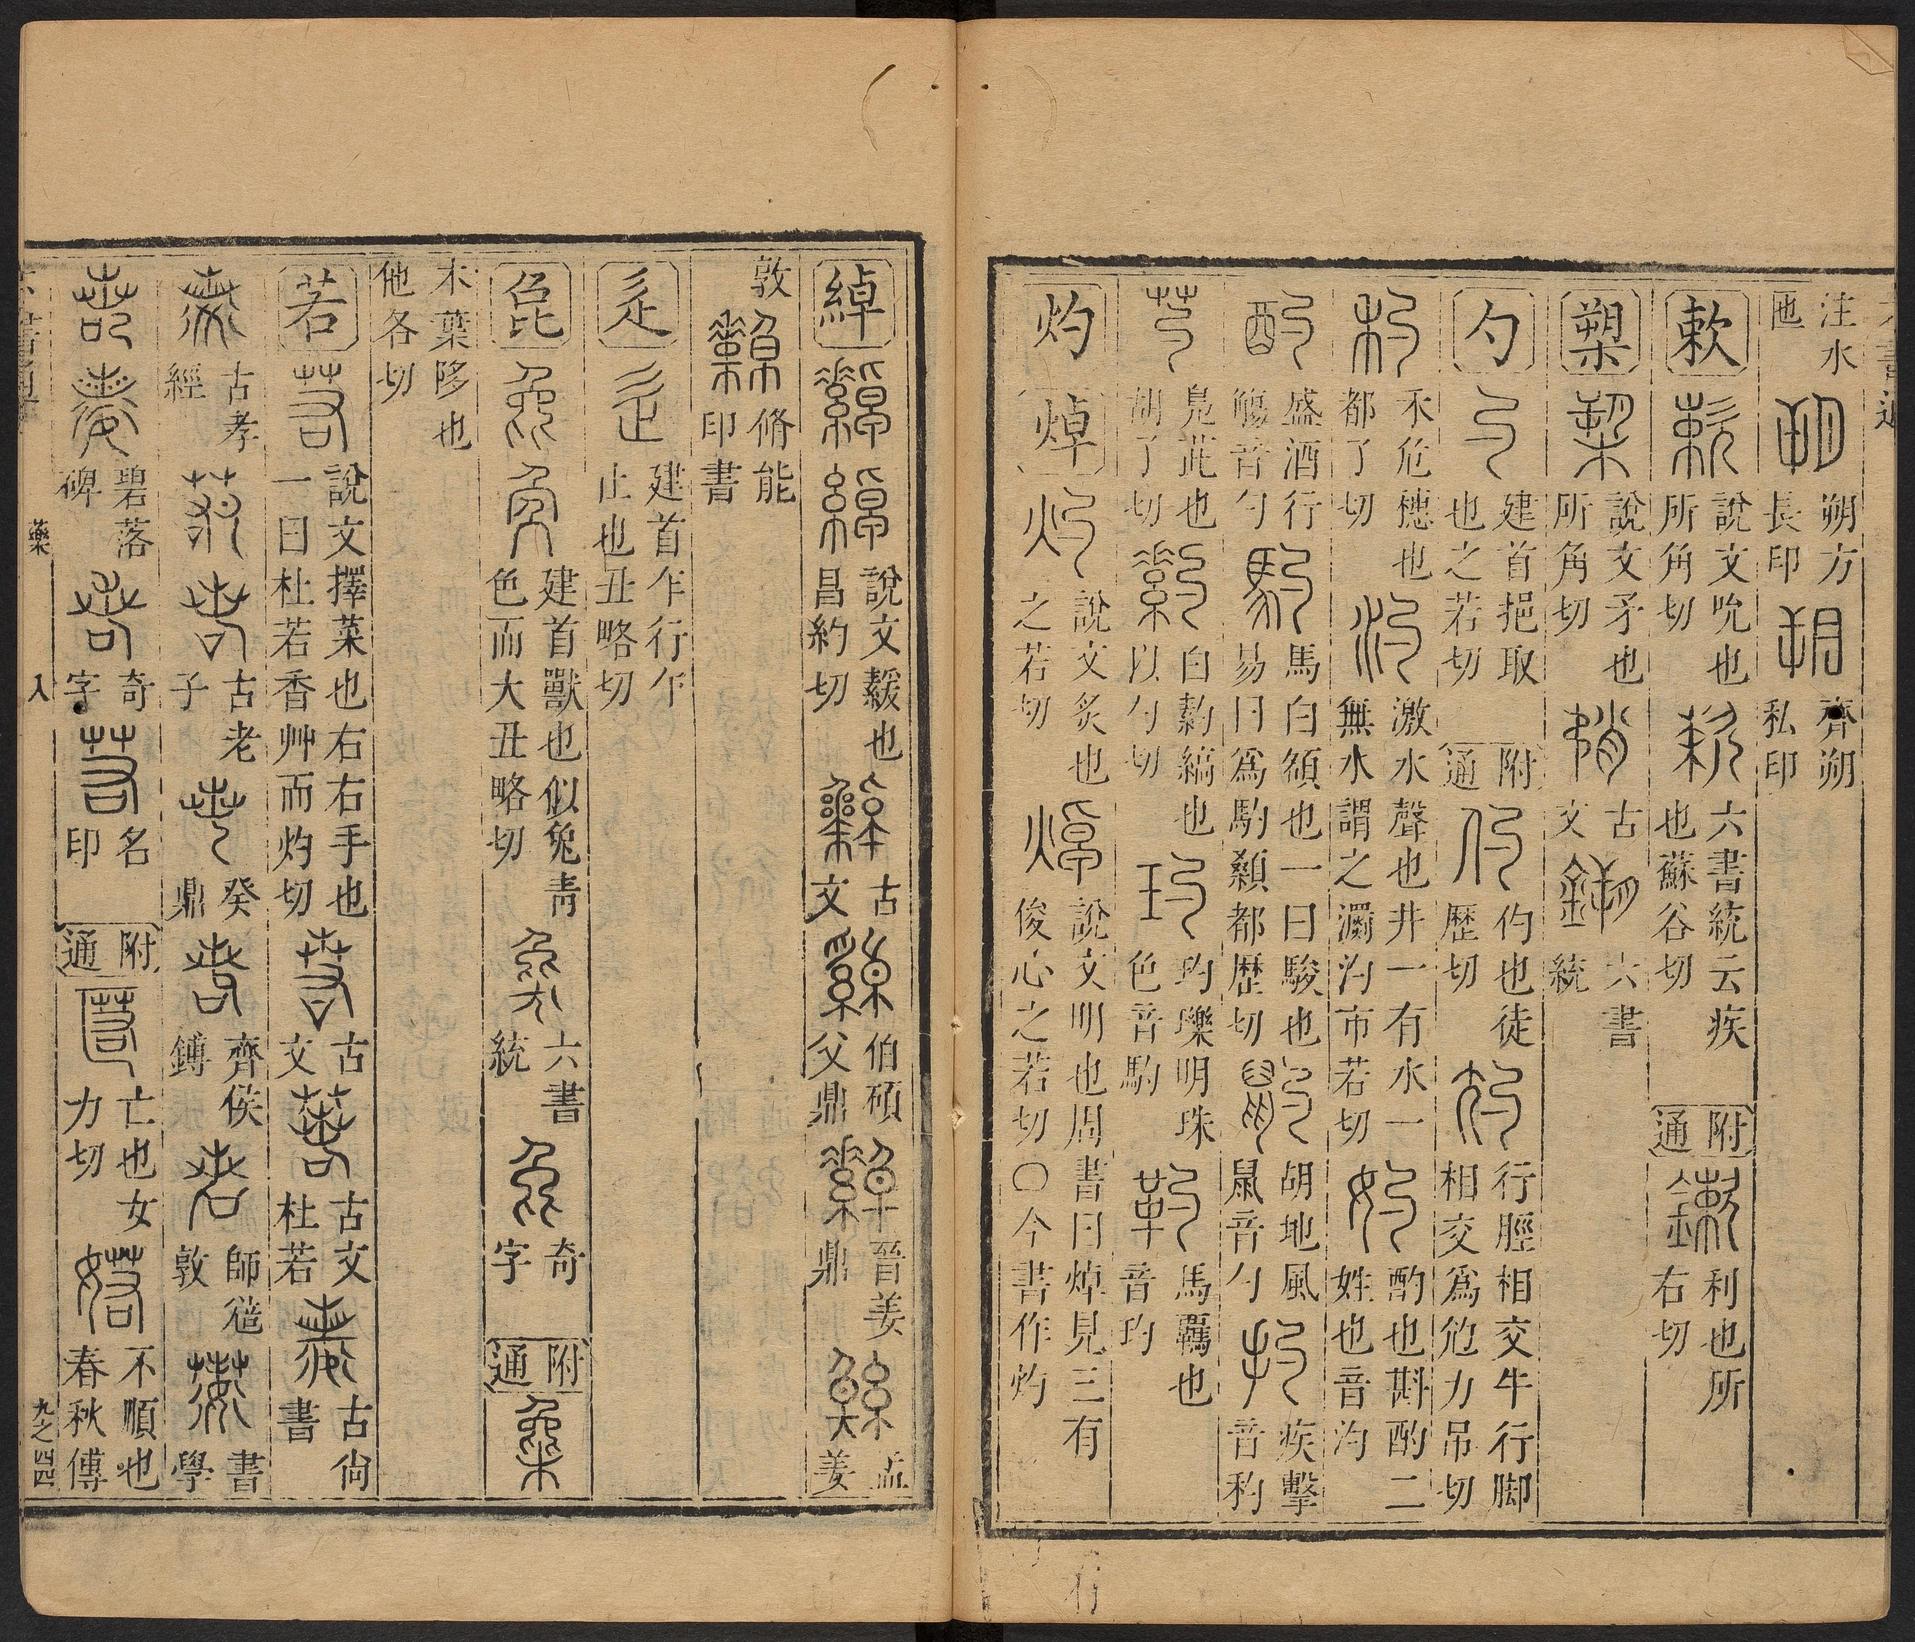 注水也 朔方長印 齊朔私印
欶 說文吮也所角切 六書統云疾也蘇谷切 附通 利也所右切
槊 說文矛也所角切 古文 六書統
勺 建首挹取也之若切 附通 仢 仢也徒歷切 行脛相交牛行脚相交為尥力吊切
禾危穗也都了切 汋 激水聲也井一有水一無水謂之瀱汋市若切 妁 酌也斟酌二姓也音汋
酌 盛酒行觴音勺 馰 馬白頟也一曰駿也易曰為馰顙都歷切 胡地風鼠音勺 扚 疾擊音杓
芍 鳧茈也胡了切 白䋤縞也以勺切 玓 玓瓅明珠色音馰 靮 馬羈也音玓
灼 焯 說文炙也之若切 說文明也周書曰焯見三有俊心之若切〇今書作灼
綽 說文緩也昌約切 古文 伯碩父鼎 晉姜鼎 孟姜
敦 脩能印書
辵 建首乍行乍止也丑略切
㲋 建首獸也似兔青色而大丑略切 六書統 奇字 附通
木葉陊也他各切
若 說文擇菜也右右手也一曰杜若香艸而灼切 古文 古文杜若 古尚書
古孝經 古老子 癸鼎 齊侯鎛 師𩛥敦 書學
碧落碑 奇字 名印 附通 亡也女力切 婼 不順也春秋傳
藥 入 九之四四